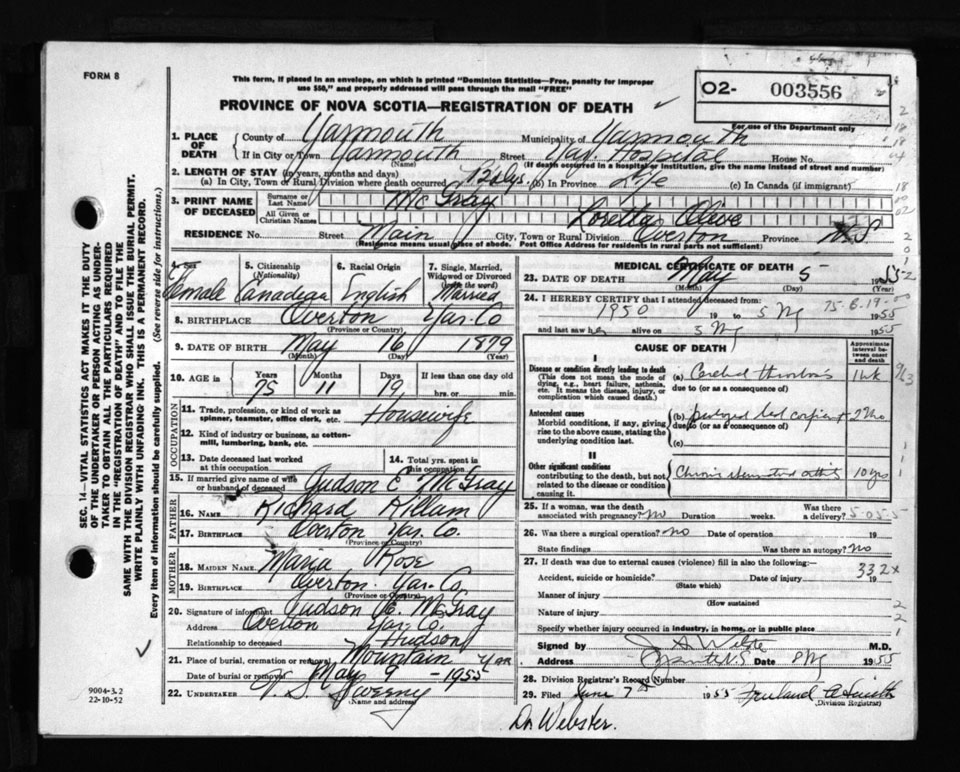 FORM 8
This form, if placed in an envelope, on which is printed "Dominion Statistics—Free, penalty for improper
use $50," and properly addressed will pass through the mail "FREE"
PROVINCE OF NOVA SCOTIA—REGISTRATION OF DEATH
O2- 003556
For use of the Department only
1. PLACE OF DEATH
County of Yarmouth Municipality of Yarmouth
If in City or Town Yarmouth Street Yar. Hospital House No.
(Name) (If death occurred in a hospital or institution, give the name instead of street and number)
2. LENGTH OF STAY (in years, months and days)
(a) In City, Town or Rural Division where death occurred 12 dys. (b) In Province Life (c) In Canada (if immigrant)
3. PRINT NAME OF DECEASED
Surname or Last Name McGray
All Given or Christian Names Loretta Olive
RESIDENCE No. Street Main City, Town or Rural Division Overton Province N.S
(Residence means usual place of abode. Post Office Address for residents in rural parts not sufficient)
4. Female
5. Citizenship (Nationality) Canadian
6. Racial Origin English
7. Single, Married, Widowed or Divorced (enter the word) Married
8. BIRTHPLACE Overton Yar. Co
(Province or Country)
9. DATE OF BIRTH May 16 1879
(Month) (Day) (Year)
10. AGE in Years Months Days If less than one day old
75 11 19 hrs. or min.
OCCUPATION
11. Trade, profession, or kind of work as spinner, teamster, office clerk, etc. Housewife
12. Kind of industry or business, as cotton-mill, lumbering, bank, etc.
13. Date deceased last worked at this occupation
14. Total yrs. spent in this occupation
15. If married give name of wife or husband of deceased Judson E McGray
FATHER
16. NAME Richard Killam
17. BIRTHPLACE Overton Yar. Co.
(Province or Country)
MOTHER
18. MAIDEN NAME Maria Rose
19. BIRTHPLACE Overton. Yar. Co.
(Province or Country)
20. Signature of informant Judson E. McGray
Address Overton Yar. Co.
Relationship to deceased
21. Place of burial, cremation or removal Mountain
Date of burial or removal May 9 - 1955
22. UNDERTAKER V. S. Sweeny
(Name and address)
MEDICAL CERTIFICATE OF DEATH
23. DATE OF DEATH May 5 1955
(Month) (Day) (Year)
24. I HEREBY CERTIFY that I attended deceased from:
1950 19 to 5 My 1955
and last saw her alive on 5 My 1955
CAUSE OF DEATH
Approximate interval between onset and death
I
Disease or condition directly leading to death
(This does not mean the mode of dying, e.g., heart failure, asthenia, etc. It means the disease, injury, or complication which caused death.)
(a) Cerebral thrombosis 1 wk
due to (or as a consequence of)
Antecedent causes
Morbid conditions, if any, giving rise to the above cause, stating the underlying condition last.
(b) 2 Mo
due to (or as a consequence of)
(c)
II
Other significant conditions contributing to the death, but not related to the disease or condition causing it.
10 yrs
25. If a woman, was the death associated with pregnancy? No Duration weeks. Was there a delivery?
26. Was there a surgical operation? No Date of operation 19
State findings Was there an autopsy? No
27. If death was due to external causes (violence) fill in also the following:—
332x
Accident, suicide or homicide? Date of injury 19
(State which)
Manner of injury
(How sustained
Nature of injury
Specify whether injury occurred in industry, in home, or in public place
Signed by M.D.
Address Date 8 My 1955
28. Division Registrar's Record Number
29. Filed June 7th 1955 A Smith
(Division Registrar)
Dr. Webster.
SEC. 14—VITAL STATISTICS ACT MAKES IT THE DUTY
OF THE UNDERTAKER OR PERSON ACTING AS UNDER-
TAKER TO OBTAIN ALL THE PARTICULARS REQUIRED
IN THE "REGISTRATION OF DEATH" AND TO FILE THE
SAME WITH THE DIVISION REGISTRAR WHO SHALL ISSUE THE BURIAL PERMIT.
WRITE PLAINLY WITH UNFADING INK. THIS IS A PERMANENT RECORD.
Every item of information should be carefully supplied. (See reverse side for instructions.)
9004-3.2
22-10-52